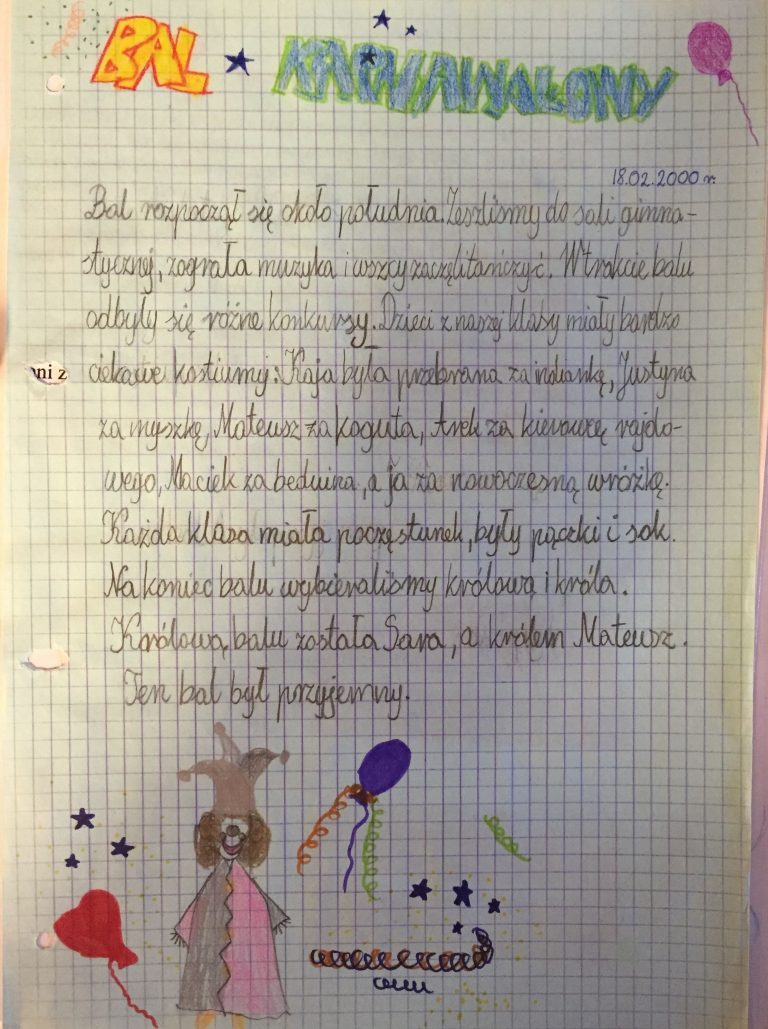 BAL KARNAWAŁOWY
18.02.2000 r.
Bal rozpoczął się około południa. Zeszliśmy do sali gimna-
stycznej, zagrała muzyka i wszcy zaczęli tańczyć. W trakcie balu
odbyły się różne konkursy. Dzieci z naszej klasy miały bardzo
oni z
ciekawe kostiumy: Kaja była przebrana za indiankę, Justyna
za myszkę, Mateusz za koguta, Arek za kierowcę rajdo-
wego, Maciek za beduina, a ja za nowoczesną wróżkę.
Każda klasa miała poczęstunek, były pączki i sok.
Na koniec balu wybieraliśmy królową i króla.
Królową balu została Sara, a królem Mateusz.
Ten bal był przyjemny.